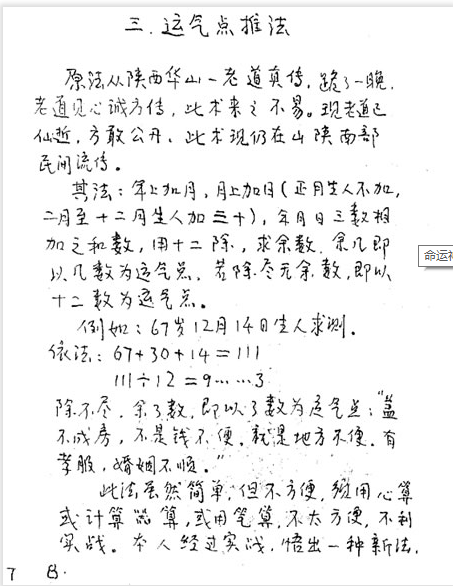 三.运气点推法
原法从陕西华山一老道真传,跪了一晚.
老道见心诚方传,此术来之不易。现老道已
仙逝,方敢公开、此术现仍在山陕南部
民间流传。
其法:年上加月,月上加日(正月生人不加,
二月至十二月生人加三十),年月日三数相
加之和数,用十二除,求余数.余几即
以几数为运气点.若除尽无余数,即以
十二数为运气点。
例如:67岁12月14日生人求测.
依法:67+30+14=111
111÷12=9……3
除不尽.余3数,即以3数为运气点:"盖
不成房,不是钱不便.就是地方不便.有
孝服,婚姻不顺。"
此法虽然简单,但不方便,须用心算
或计算器算,或用笔算,不太方便,不利
实战。本人经过实战,悟出一种新法.
7 B.
命运神